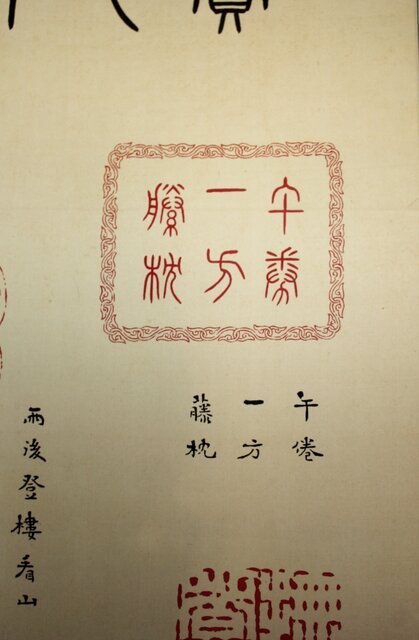 午倦
一方
藤枕
午倦
一方
藤枕
雨後登樓看山